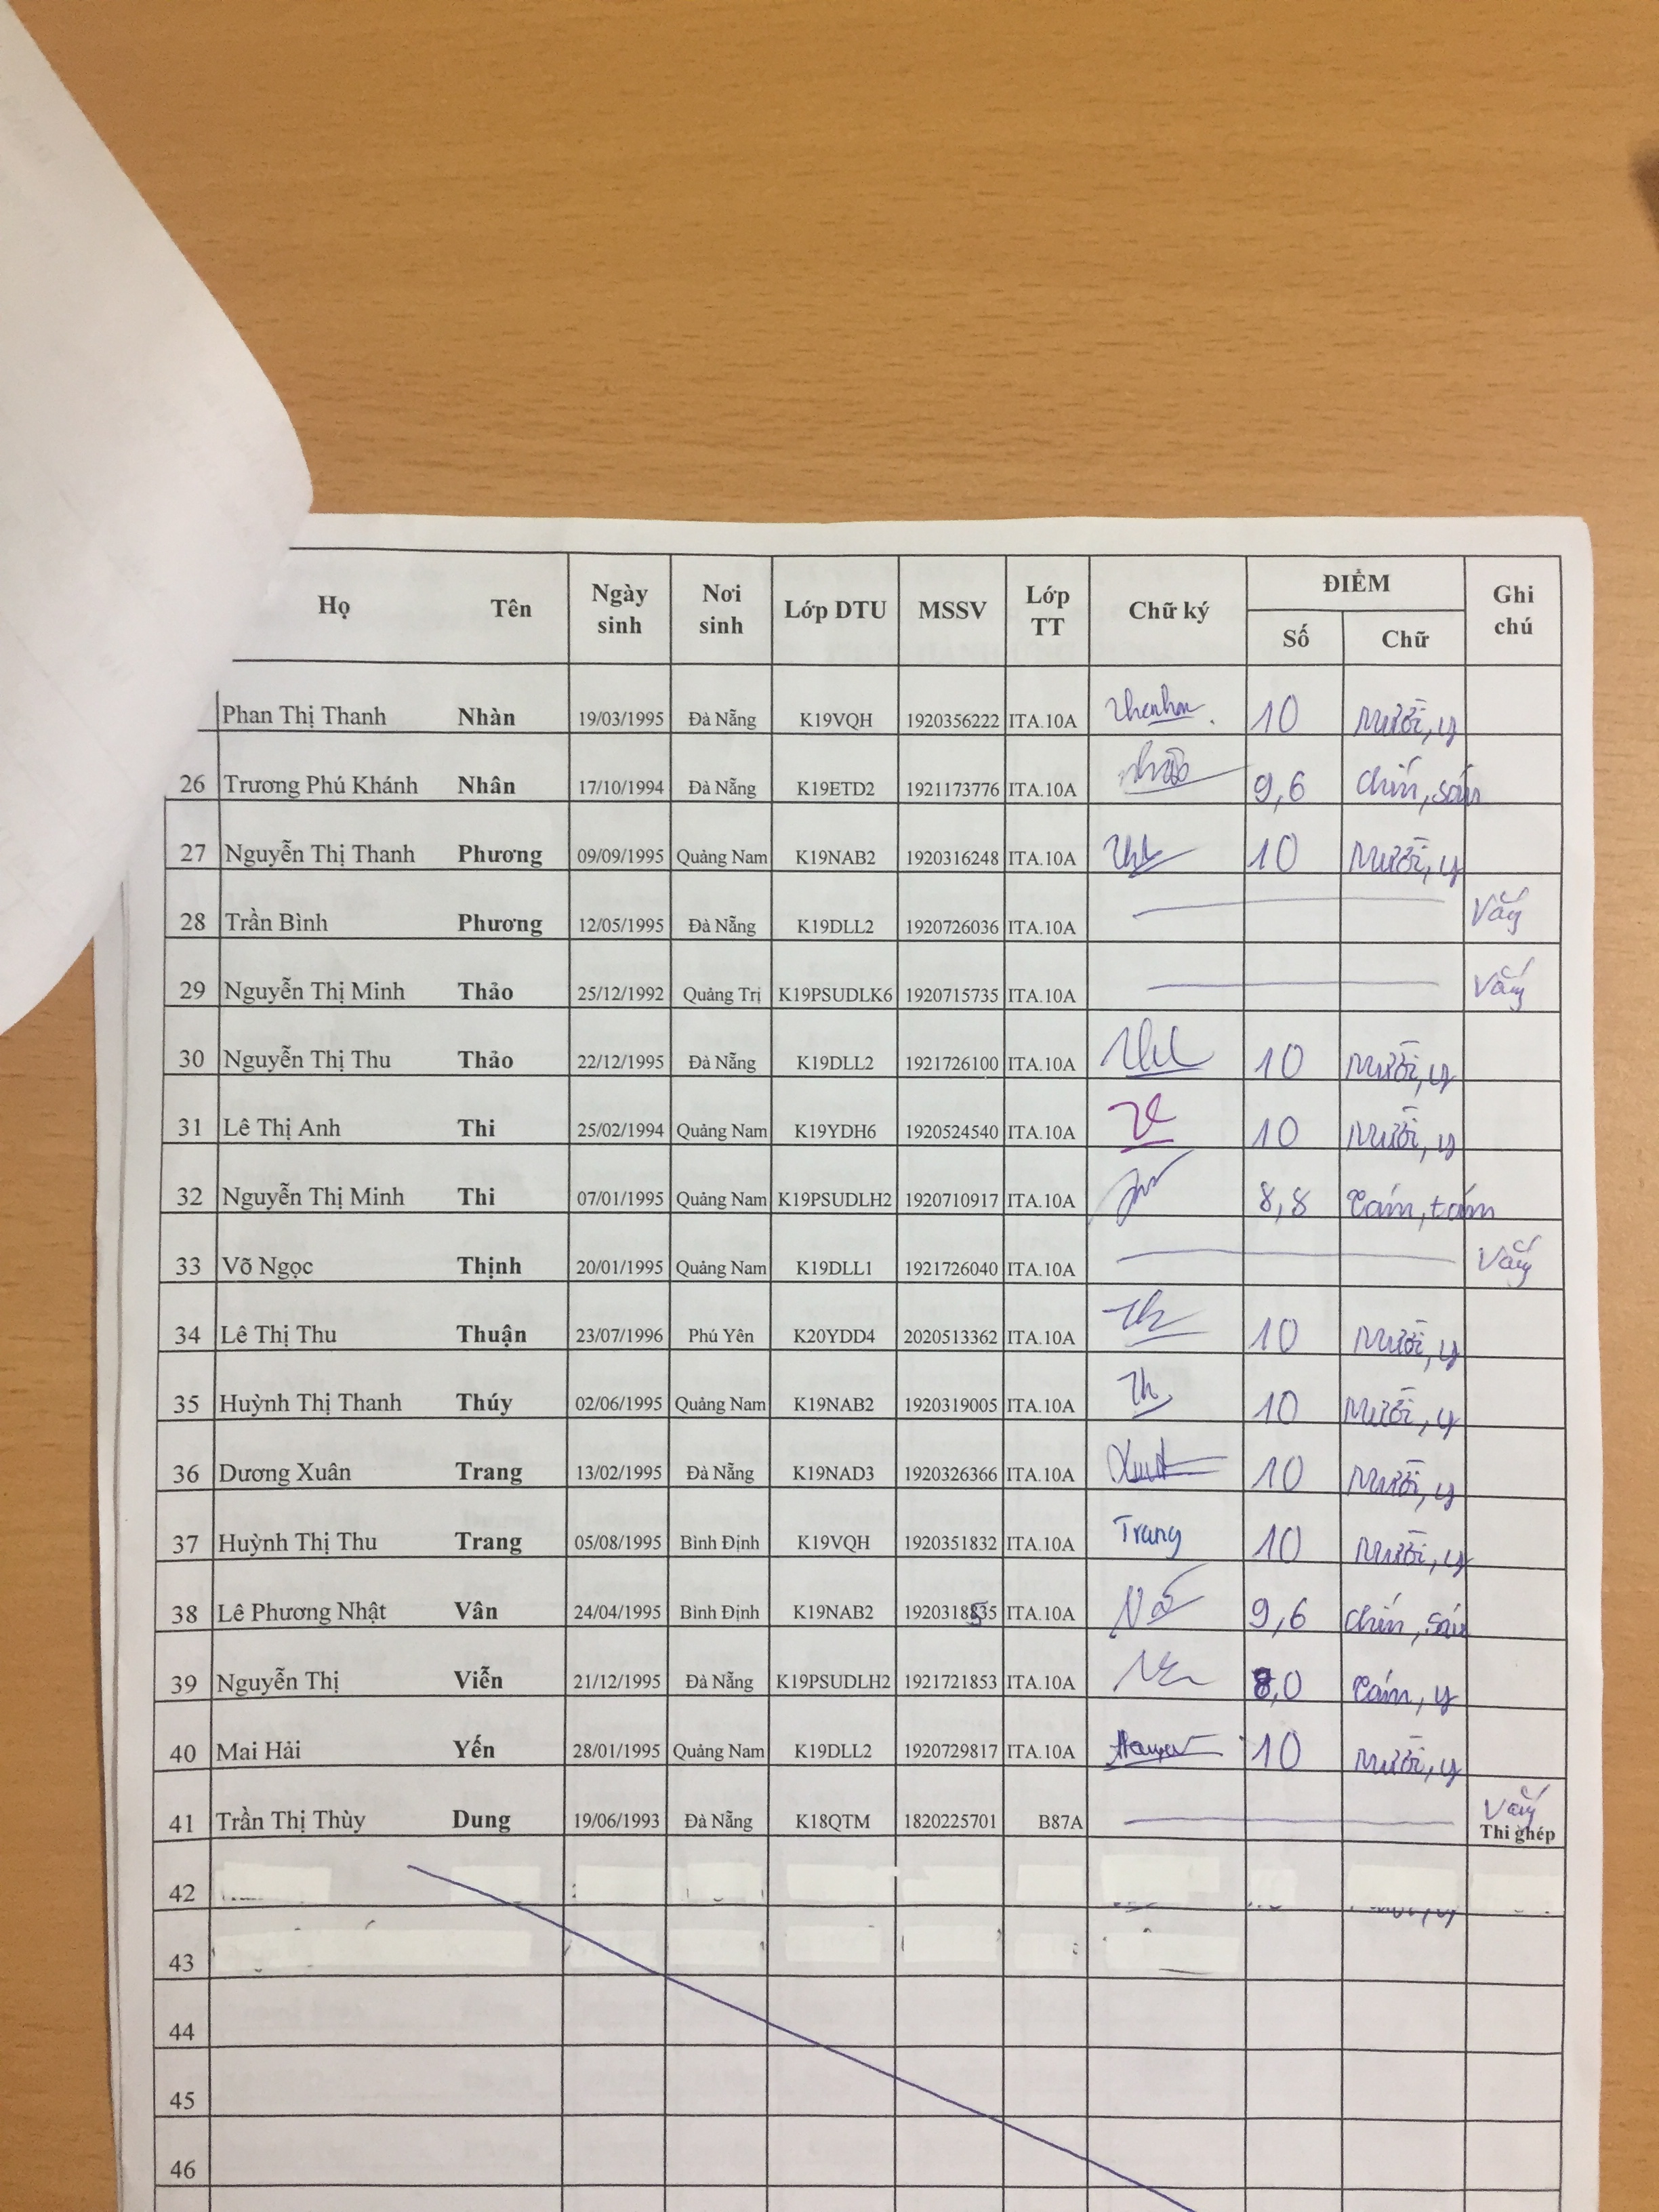 Họ Tên Ngày sinh Nơi sinh Lớp DTU MSSV Lớp TT Chữ ký ĐIỂM Số Chữ Ghi chú
Phan Thị Thanh Nhàn 19/03/1995 Đà Nẵng K19VQH 1920356222 ITA.10A 10 Mười, y
26 Trương Phú Khánh Nhân 17/10/1994 Đà Nẵng K19ETD2 1921173776 ITA.10A 9,6 Chín, sáu
27 Nguyễn Thị Thanh Phương 09/09/1995 Quảng Nam K19NAB2 1920316248 ITA.10A 10 Mười, y
28 Trần Bình Phương 12/05/1995 Đà Nẵng K19DLL2 1920726036 ITA.10A Vắng
29 Nguyễn Thị Minh Thảo 25/12/1992 Quảng Trị K19PSUDLK6 1920715735 ITA.10A Vắng
30 Nguyễn Thị Thu Thảo 22/12/1995 Đà Nẵng K19DLL2 1921726100 ITA.10A 10 Mười, y
31 Lê Thị Anh Thi 25/02/1994 Quảng Nam K19YDH6 1920524540 ITA.10A 10 Mười, y
32 Nguyễn Thị Minh Thi 07/01/1995 Quảng Nam K19PSUDLH2 1920710917 ITA.10A 8,8 Tám, tám
33 Võ Ngọc Thịnh 20/01/1995 Quảng Nam K19DLL1 1921726040 ITA.10A Vắng
34 Lê Thị Thu Thuận 23/07/1996 Phú Yên K20YDD4 2020513362 ITA.10A 10 Mười, y
35 Huỳnh Thị Thanh Thúy 02/06/1995 Quảng Nam K19NAB2 1920319005 ITA.10A 10 Mười, y
36 Dương Xuân Trang 13/02/1995 Đà Nẵng K19NAD3 1920326366 ITA.10A 10 Mười, y
37 Huỳnh Thị Thu Trang 05/08/1995 Bình Định K19VQH 1920351832 ITA.10A Trang 10 Mười, y
38 Lê Phương Nhật Vân 24/04/1995 Bình Định K19NAB2 ITA.10A 9,6 Chín, sáu
39 Nguyễn Thị Viễn 21/12/1995 Đà Nẵng K19PSUDLH2 1921721853 ITA.10A 8,0 Tám, y
40 Mai Hải Yến 28/01/1995 Quảng Nam K19DLL2 1920729817 ITA.10A 10 Mười, y
41 Trần Thị Thùy Dung 19/06/1993 Đà Nẵng K18QTM 1820225701 B87A Vắng Thi ghép
42
43
44
45
46